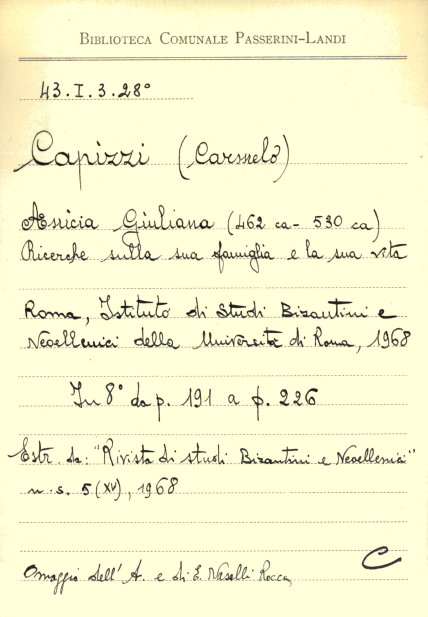 BIBLIOTECA COMUNALE PASSERINI-LANDI
43.I.3.28°
Capizzi (Carmelo)
Anicia Giuliana (462 ca - 530 ca)
Ricerche sulla sua famiglia e la sua vita
Roma, Istituto di Studi Bizantini e
Neoellenici della Università di Roma, 1968
In 8° da p. 191 a p. 226
Estr. da: "Rivista di studi Bizantini e Neoellenici"
n.s. 5 (XV), 1968
C
Omaggio dell'A. e di E. Naselli Rocca